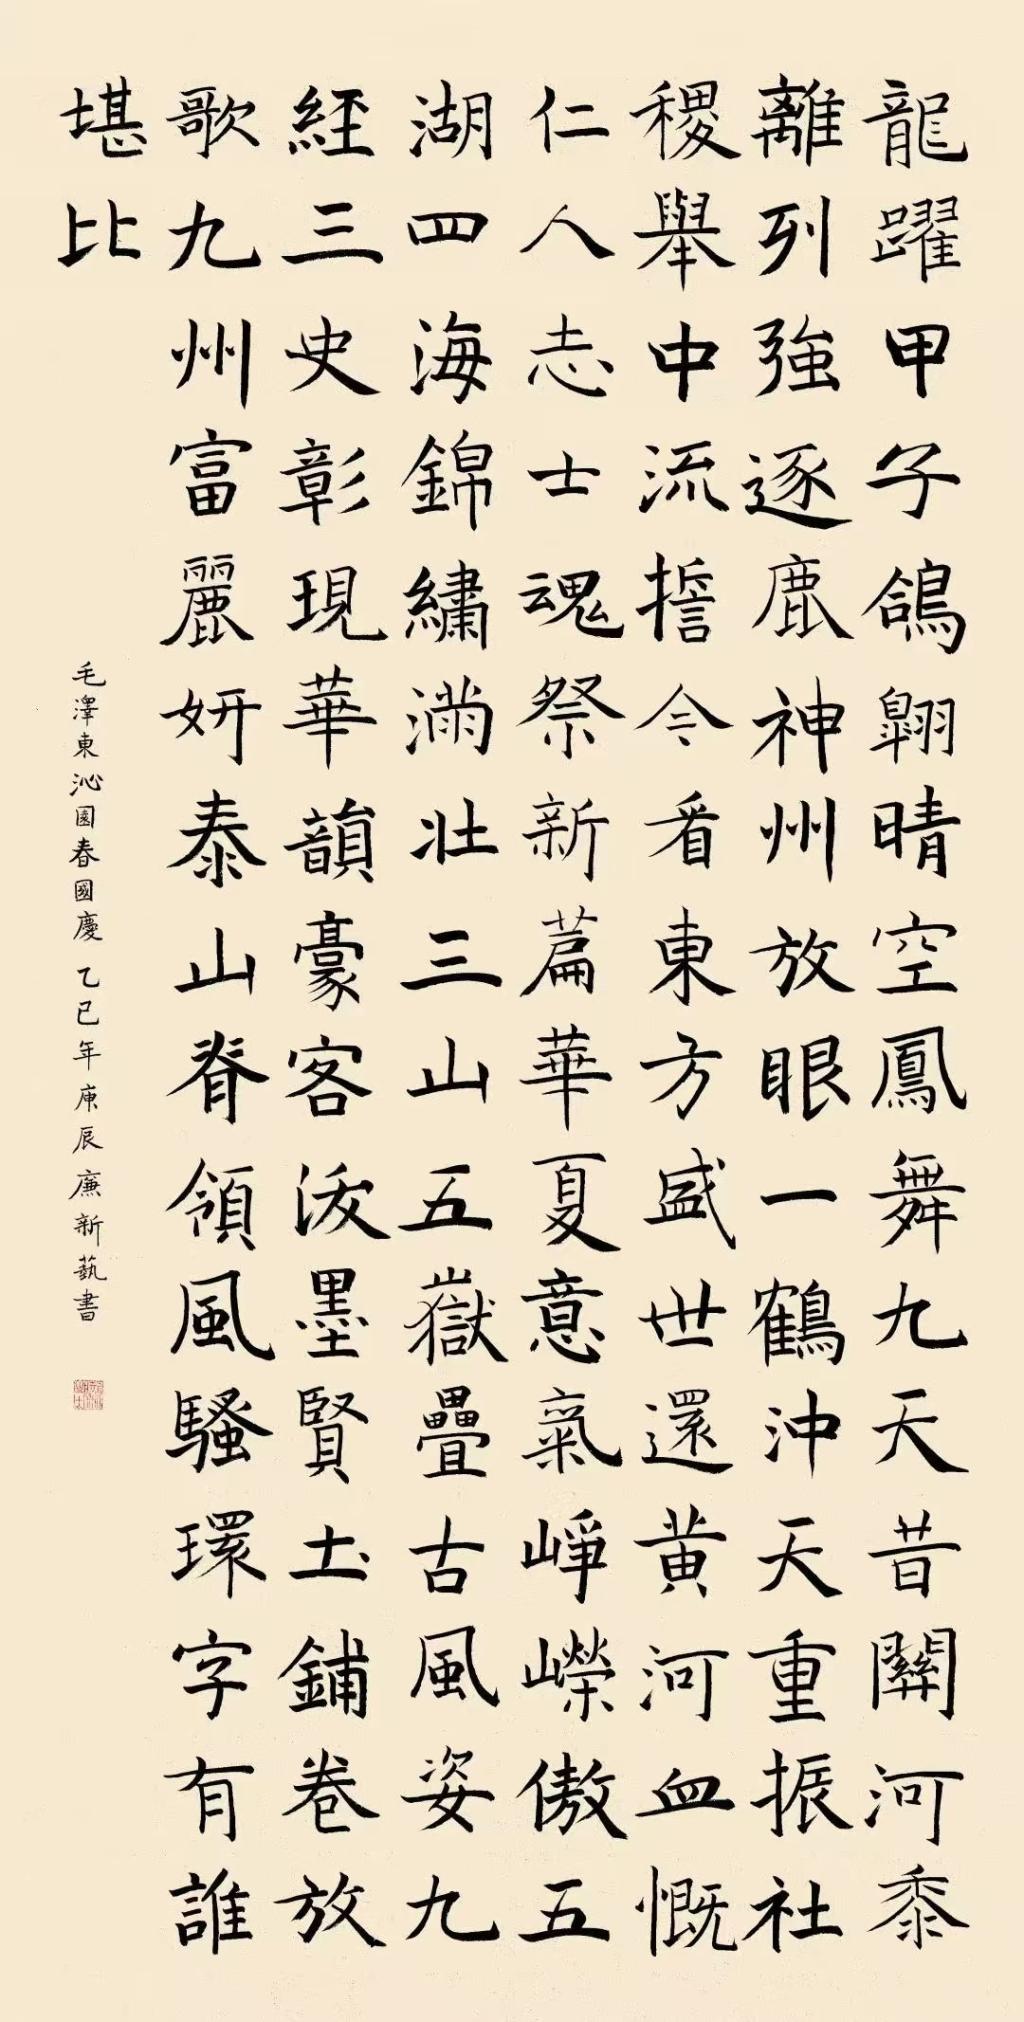 龍躍甲子鴿翺晴空鳳舞九天昔關河黍
離列強逐鹿神州放眼一鶴沖天重振社
稷舉中流擔令看東方盛世還黃河血慨
仁人志士魂祭新篇華夏意氣崢嶸傲五
湖四海錦繡滿壯三山五嶽疊古風姿九
經三史彰現華韻豪客潑墨賢士鋪卷放
歌九州富麗妍泰山脊領風騷環字有誰
堪比
毛澤東沁園春國慶 乙巳年庚辰廉新藝書